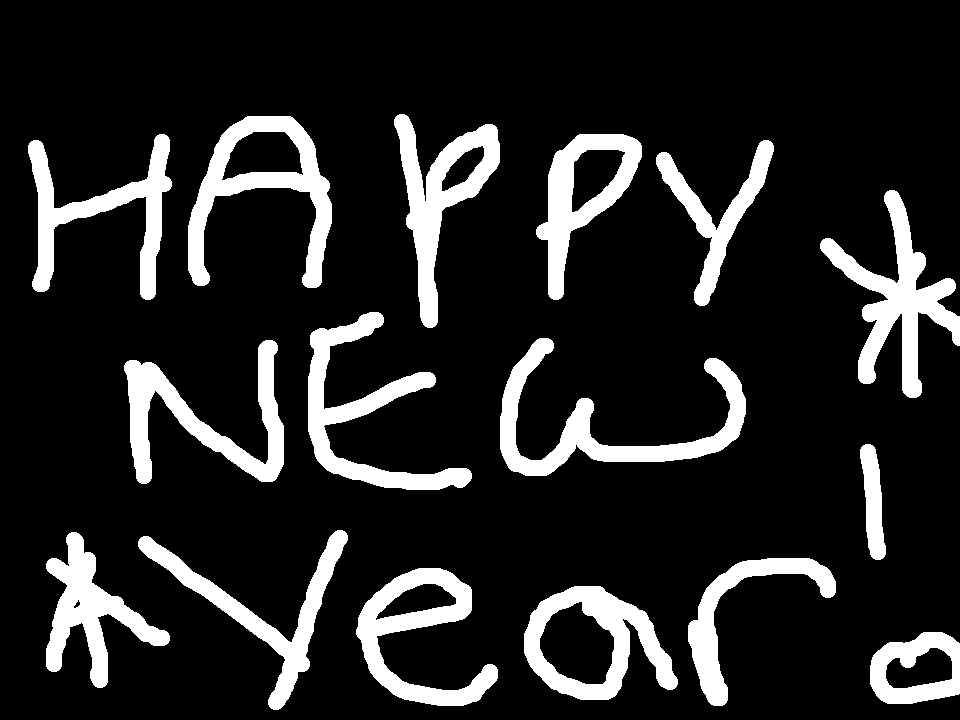 HAPPY
NEW
Year!